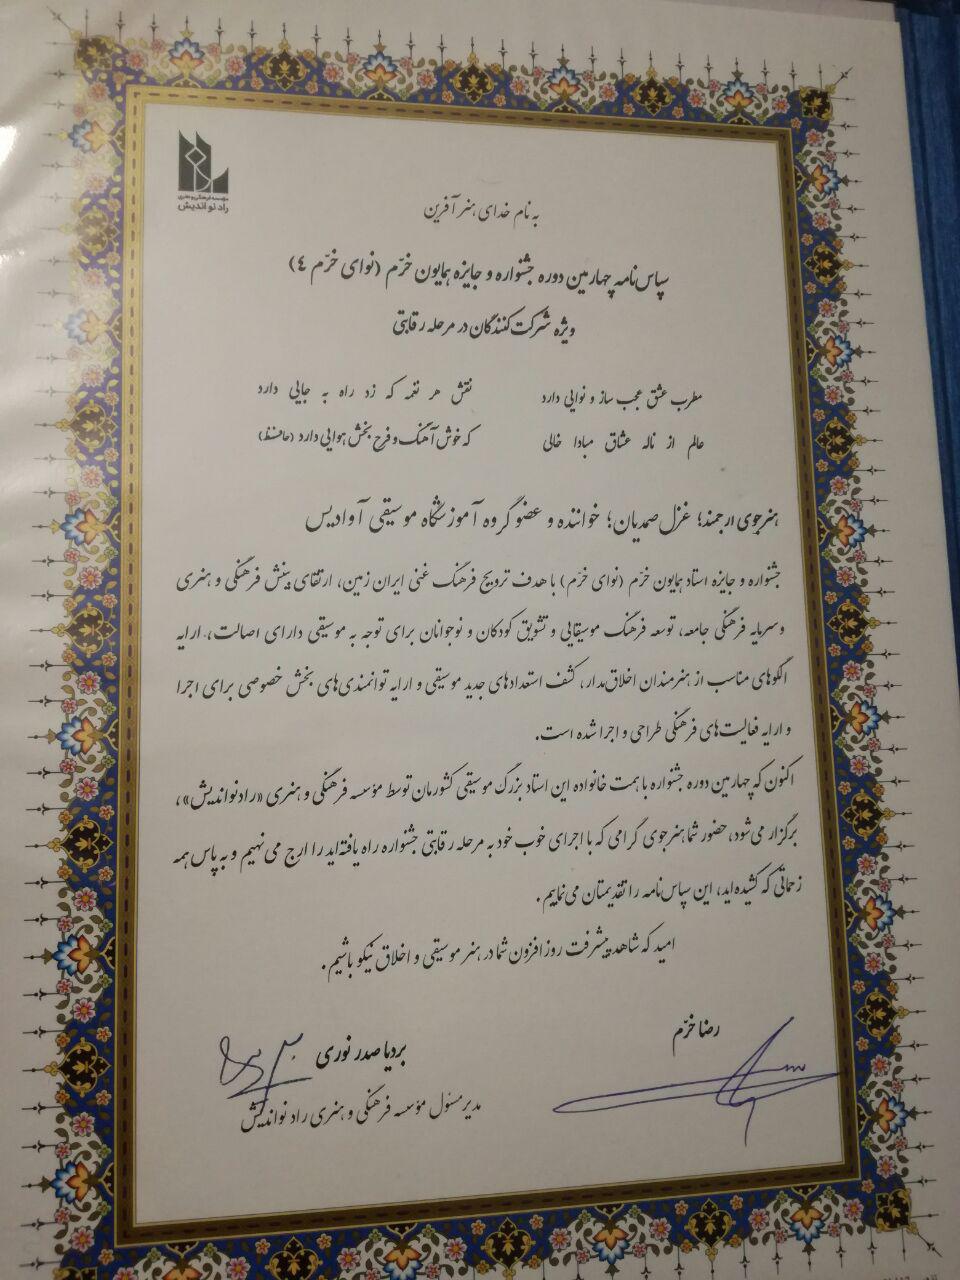 مؤسسه فرهنگی و هنری
راد نو اندیش
به نام خدای هنر آفرین
سپاس‌نامه چهارمین دوره جشنواره و جایزه همایون خرّم (نوای خرّم ٤)
ویژه شرکت‌کنندگان در مرحله رقابتی
مطرب عشق عجب ساز و نوایی دارد نقش هر نغمه که زد راه به جایی دارد
عالم از ناله عشاق مبادا خالی که خوش آهنگ و فرح بخش هوایی دارد (حافظ)
هنرجوی ارجمند؛ غزل صمدیان؛ خواننده و عضو گروه آموزشگاه موسیقی آوادیس
جشنواره و جایزه استاد همایون خرّم (نوای خرّم) با هدف ترویج فرهنگ غنی ایران زمین، ارتقای بینش فرهنگی و هنری
و سرمایه فرهنگی جامعه، توسعه فرهنگ موسیقایی و تشویق کودکان و نوجوانان برای توجه به موسیقی دارای اصالت، ارایه
الگوهای مناسب از هنرمندان اخلاق‌مدار، کشف استعدادهای جدید موسیقی و ارایه توانمندی‌های بخش خصوصی برای اجرا
و ارایه فعالیت‌های فرهنگی طراحی و اجرا شده است.
اکنون که چهارمین دوره جشنواره با همت خانواده این استاد بزرگ موسیقی کشورمان توسط مؤسسه فرهنگی و هنری «راد نواندیش»،
برگزار می‌شود، حضور شما هنرجوی گرامی که با اجرای خوب خود به مرحله رقابتی جشنواره راه یافته‌اید را ارج می‌نهیم و به پاس همه
زحماتی که کشیده‌اید، این سپاس‌نامه را تقدیمتان می‌نماییم.
امید که شاهد پیشرفت روز افزون شما در هنر موسیقی و اخلاق نیکو باشیم.
رضا خرّم
بردیا صدر نوری
مدیر مسئول مؤسسه فرهنگی و هنری راد نواندیش